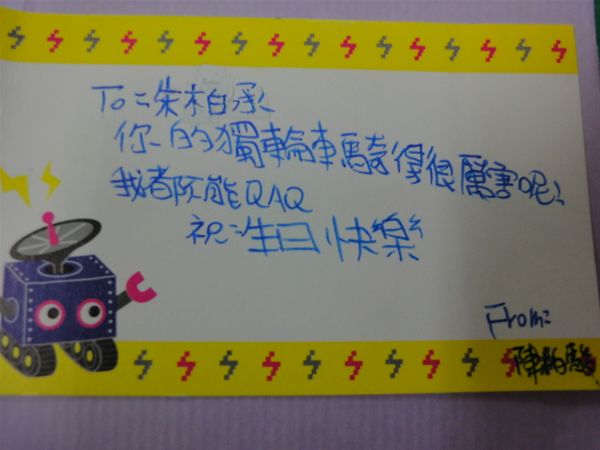 To:朱柏承
你的獨輪車騎得很厲害呢!
我都不能QAQ
祝:生日快樂
From:
陳柏